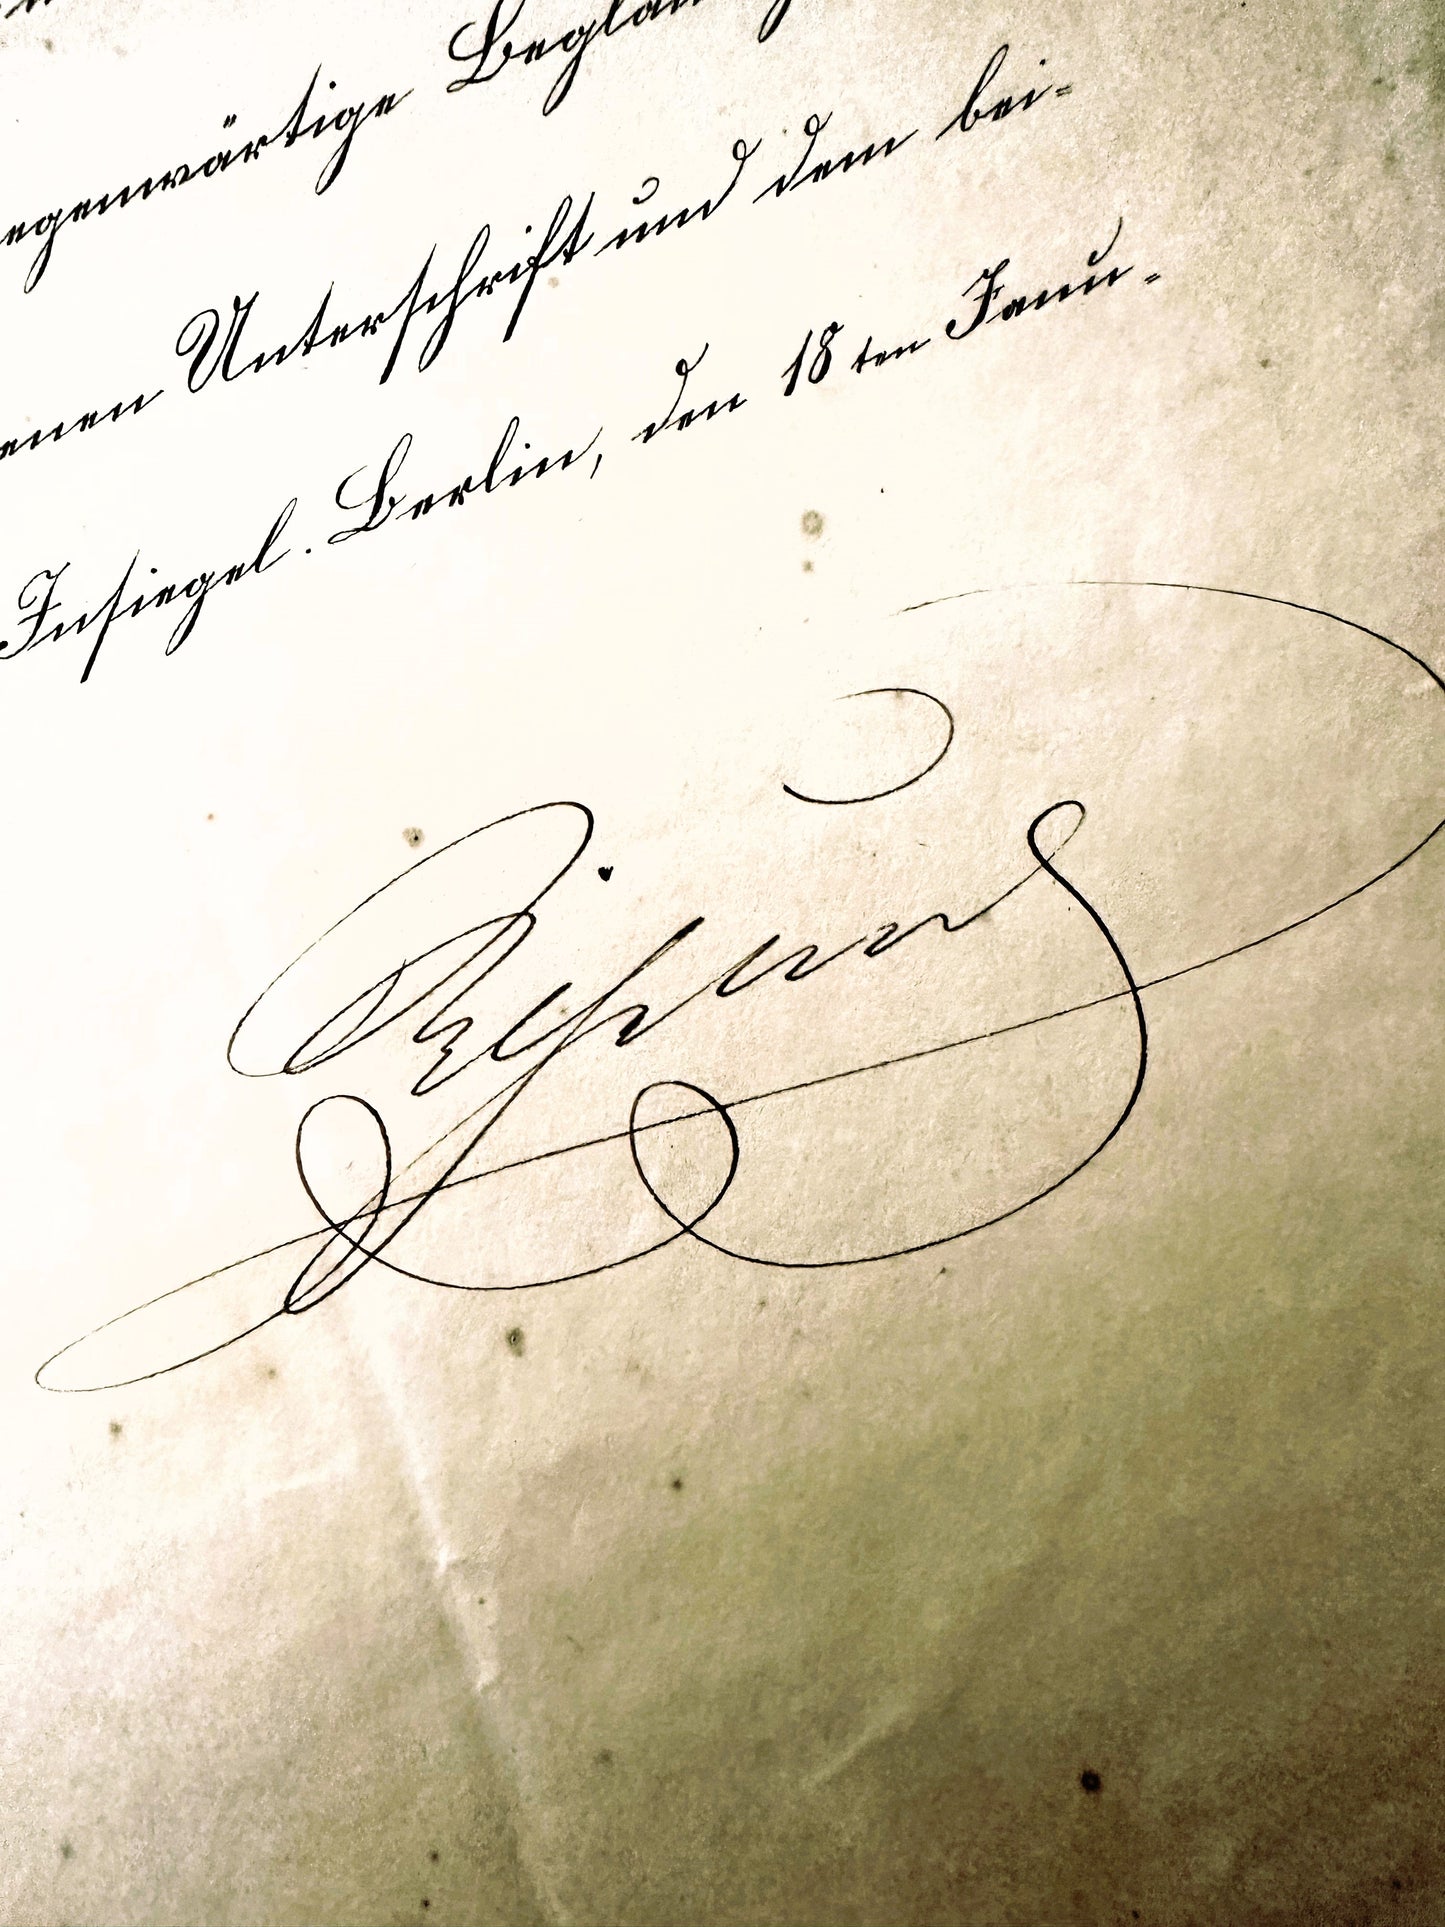 egenwärtige Beglau
enen Unterschrift und dem bei-
Insiegel. Berlin, den 18ten Janu-